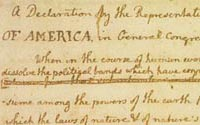 A Declaration by the Representat
OF AMERICA, in General Congre
When in the course of human even
dissolve the political bands which have con
sume among the powers of the earth
which the laws of nature & of nature's